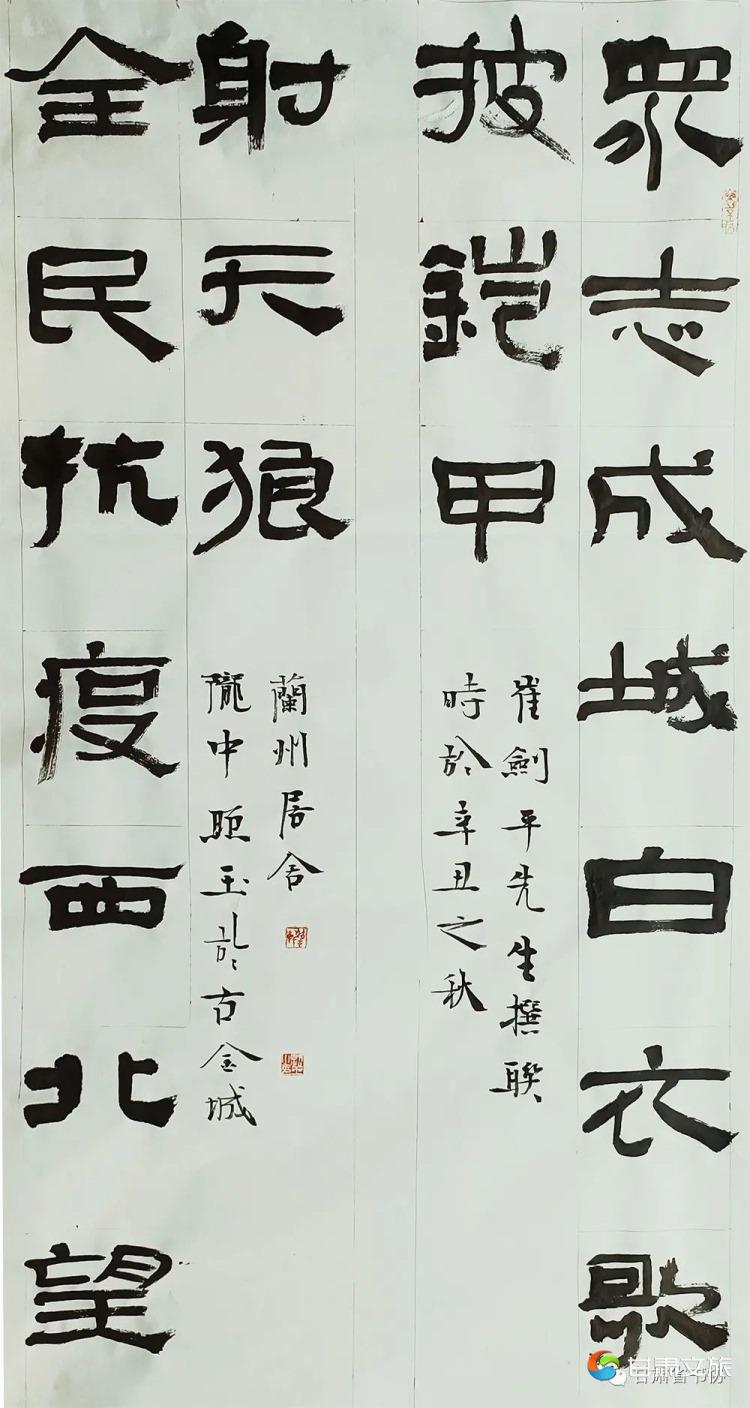 衆志成城白衣歌
披鎧甲
崔劍平先生撰聯
時於辛丑之秋
全民抗疫西北望
射天狼
隴中照玉於古金城
蘭州居舍
甘肃文旅
甘肃省书协